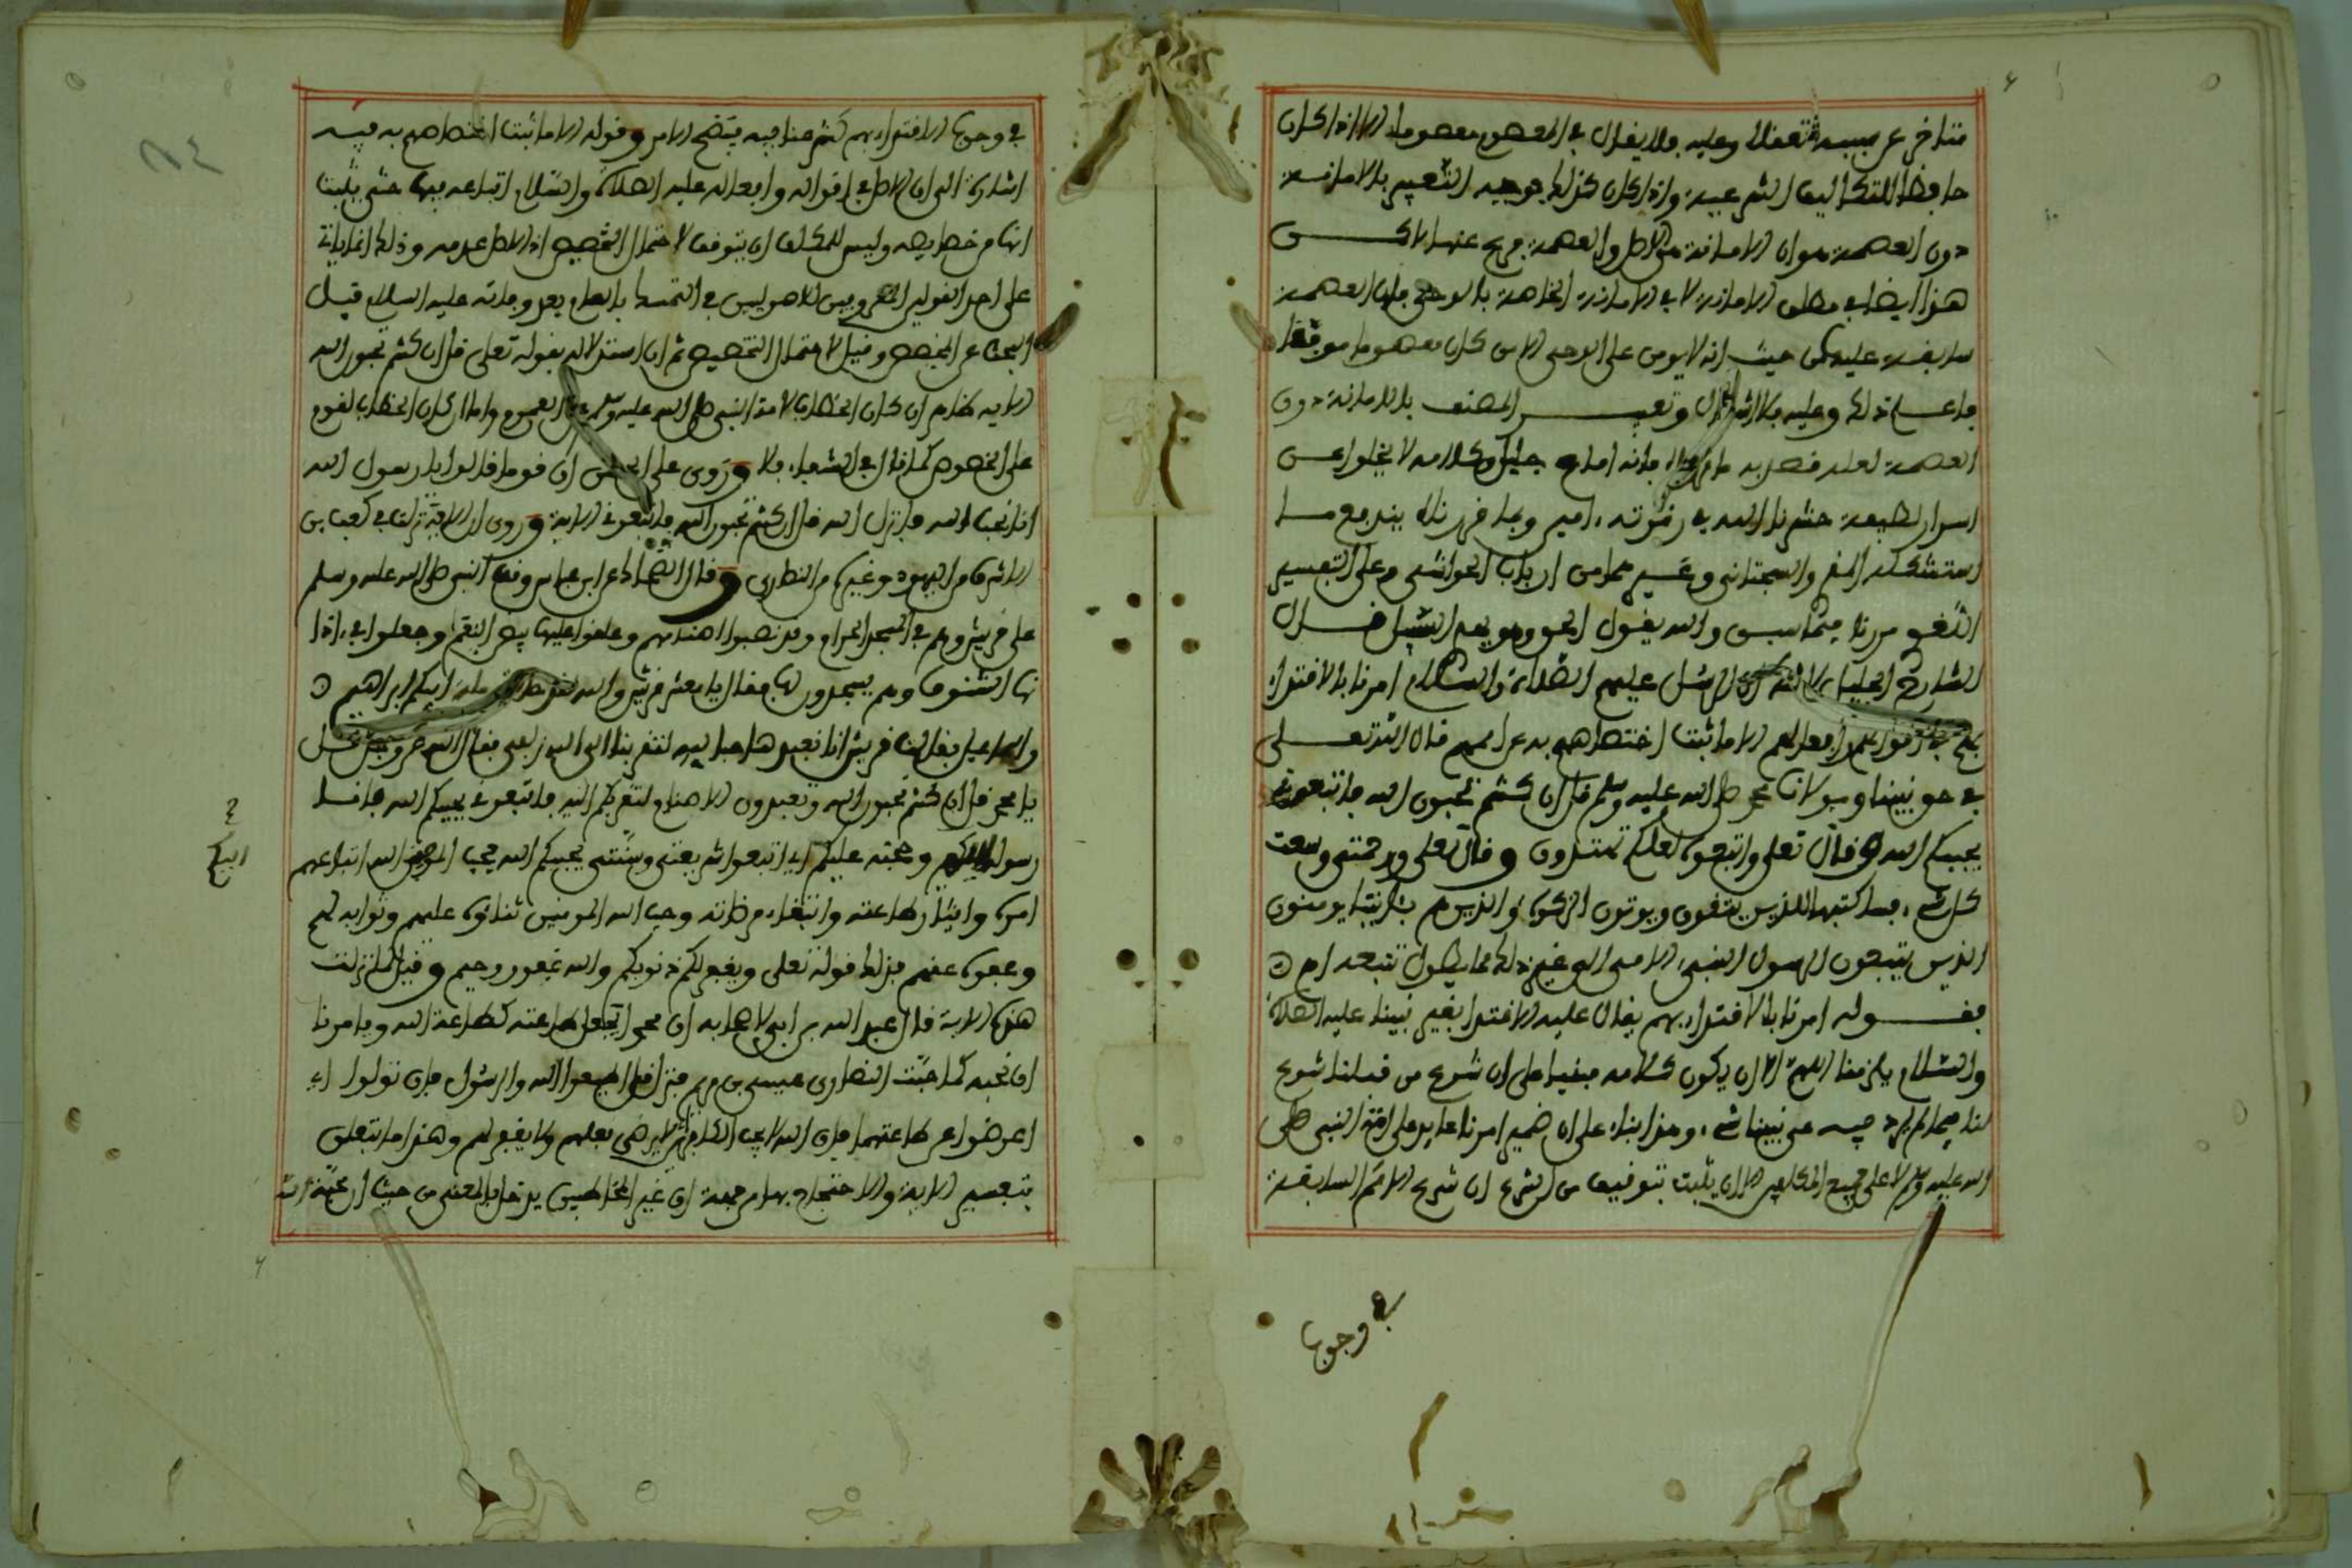 متاخر عن سببه تعقلا وعليه فلا يقال في المعصوم معصوما الا اذا كان
حافظا للتكاليف الشرعية واذا كان كذلك فوجه التعبير بالامانة
دون العصمة هو ان الامانة هي الاصل والعصمة فرع عنها لاكن
هذا ايضا في مطلق الامانة لا في الامانة الخاصة بالوحي فان العصمة
سابقة عليه من حيث انه لا يومن على الوحي الا من كان معصوما موفقا
فاعلم ذلك وعليه فلا اشكال وتعبير المصنف بالامانة دون
العصمة لعله قصد به ما فانه امام جليل وكلامه لا يخلوا عن
اسرار لطيفة حشرنا الله في زمرته امين وبما قررناه يندفع ما
استشكله والسجتاني وغيرهما من ارباب الحواشي م على التفسير
اللغوي مرنا فيما سبق والله يقول الحق وهو يهدي السبيل قال
الشارح الجليل الرسل عليهم الصلاة والسلام امرنا بالاقتداء
بهم في اقوالهم وافعالهم الا ما ثبت اختصاصهم به عن اممهم قال الله تعلى
في حق نبينا ومولانا محمد صلى الله عليه وسلم قل ان كنتم تحبون الله فاتبعوني
يحببكم الله وقال تعلى واتبعوه لعلكم تهتدون وقال تعلى ورحمتي وسعت
كل شيء فساكتبها للذين يتقون ويوتون الزكوة والذين هم بئايتنا يومنون
الذين يتبعون الرسول النبيء الامي الى غير ذلك مما يطول تتبعه اه
فقوله امرنا بالاقتداء بهم يقال عليه الاقتدا بغير نبينا عليه الصلاة
والسلام يلزمنا اللهم الا ان يكون كلامه مبنيا على ان شرع من قبلنا شرع
لنا فيما لم يرد فيه عن نبينا شيء وهذا بناء على ان ضمير امرنا عايد على امة النبي صلى
الله عليه وسلم لا على جميع المكلفين الا ان يثبت بتوقيف من الشرع ان شرع الامم السابقة
في وجوب
في وجوب الاقتداء بهم كشرعنا فيه يتضح الامر وقوله الا ما ثبت اختصاصهم به فيه
اشارة الى ان الاصل في اقواله وافعاله عليه الصلاة والسلام اتباعه فيها حتى يثبت
انها من خصايصه وليس للمكلف ان يتوقف لاحتمال التخصيص اذ الاصل عدمه وذلك انما ياتي
على احد القولين المعروفين للاصوليين في التمسك بالعام بعد وفاته عليه السلام قبل
البحث عن المخصص وقيل لاحتمال التخصيص ثم ان استدلاله بقوله تعلى قل ان كنتم تحبون الله
الاية ظاهر ان كان الخطاب لامة النبي صلى الله عليه وسلم العموم واما ان كان الخطاب لقوم
على الخصوص كما قال في الشفاء فلا وروى على ان قوما قالوا يا رسول الله
انا نحب الله فانزل الله قل ان كنتم تحبون الله فاتبعوني الاية وروى ان الاية نزلت في كعب بن
الاشرف من اليهود وغيره من النصارى وقال الضحاك عن ابن عباس وقف النبي صلى الله عليه وسلم
على قريش وهم في المسجد الحرام وقد نصبوا اصنامهم وعلقوا عليها بيض النعام وجعلوا في اذا
نها الشنوف وهم يسجدون لها فقال يا معشر قريش والله لقد خالفتم ملة ابيكم ابراهيم
واسماعيل فقالت قريش انا نعبدها حبا ليه لتقربنا الى الله زلفى فقال الله عز وجل قل
يا محمد قل ان كنتم تحبون الله وتعبدون الاصنام لتقربكم اليه فاتبعوني يحببكم الله فانا
رسوله اليكم وحجته عليكم اي اتبعوا شريعتي وسنتي يحببكم الله فحب المومنين الله اتباعهم
امره وايثار طاعته وابتغاء مرضاته وحب الله المومنين ثناؤه عليهم وثوابه لهم
وعفوه عنهم فذلك قوله تعلى ويغفر لكم ذنوبكم والله غفور رحيم وقيل لما نزلت
هذه الاية قال عبد الله بن ابي لاصحابه ان محمدا يجعل طاعته كطاعة الله ويامرنا
ان نحبه كما حبت النصارى عيسى بن مريم فنزل قل اطيعوا الله والرسول فان تولوا اي
اعرضوا عن طاعتهما فان الله لا يحب الكافرين لا يرضى فعلهم ولا يغفر لهم وهذا ما يتعلق
بتفسير الاية والاحتجاج بها من جهة ان غير المخاطبين يدخل بالمعنى من حيث ان محبة الله
اليكم